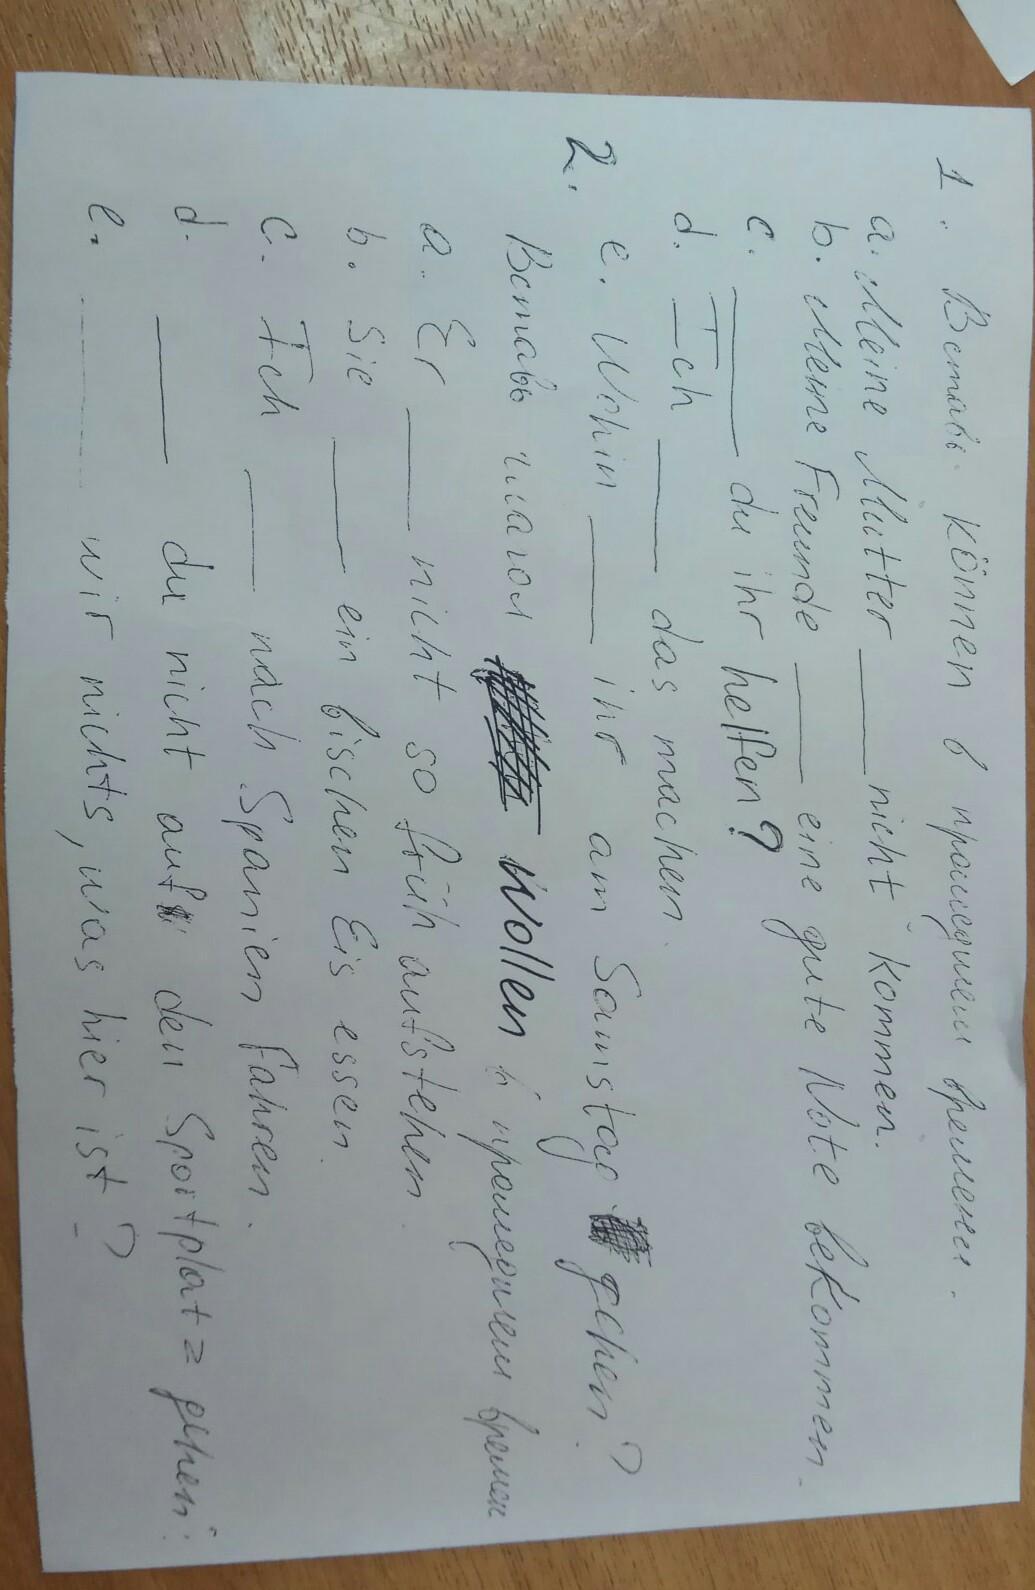 1. Вставь können в прошедшем времени.
a. Meine Mutter ____ nicht kommen.
b. Meine Freunde ____ eine gute Note bekommen.
c. ____ du ihr helfen?
d. Ich ____ das machen.
e. Wohin ____ ihr am Samstag gehen?
2. Вставь глагол wollen в прошедшем времен
a. Er ____ nicht so früh aufstehen.
b. Sie ____ ein bischen Eis essen.
c. Ich ____ nach Spanien fahren.
d. ____ du nicht auf den Sportplatz gehen?
e. ____ wir nichts, was hier ist?